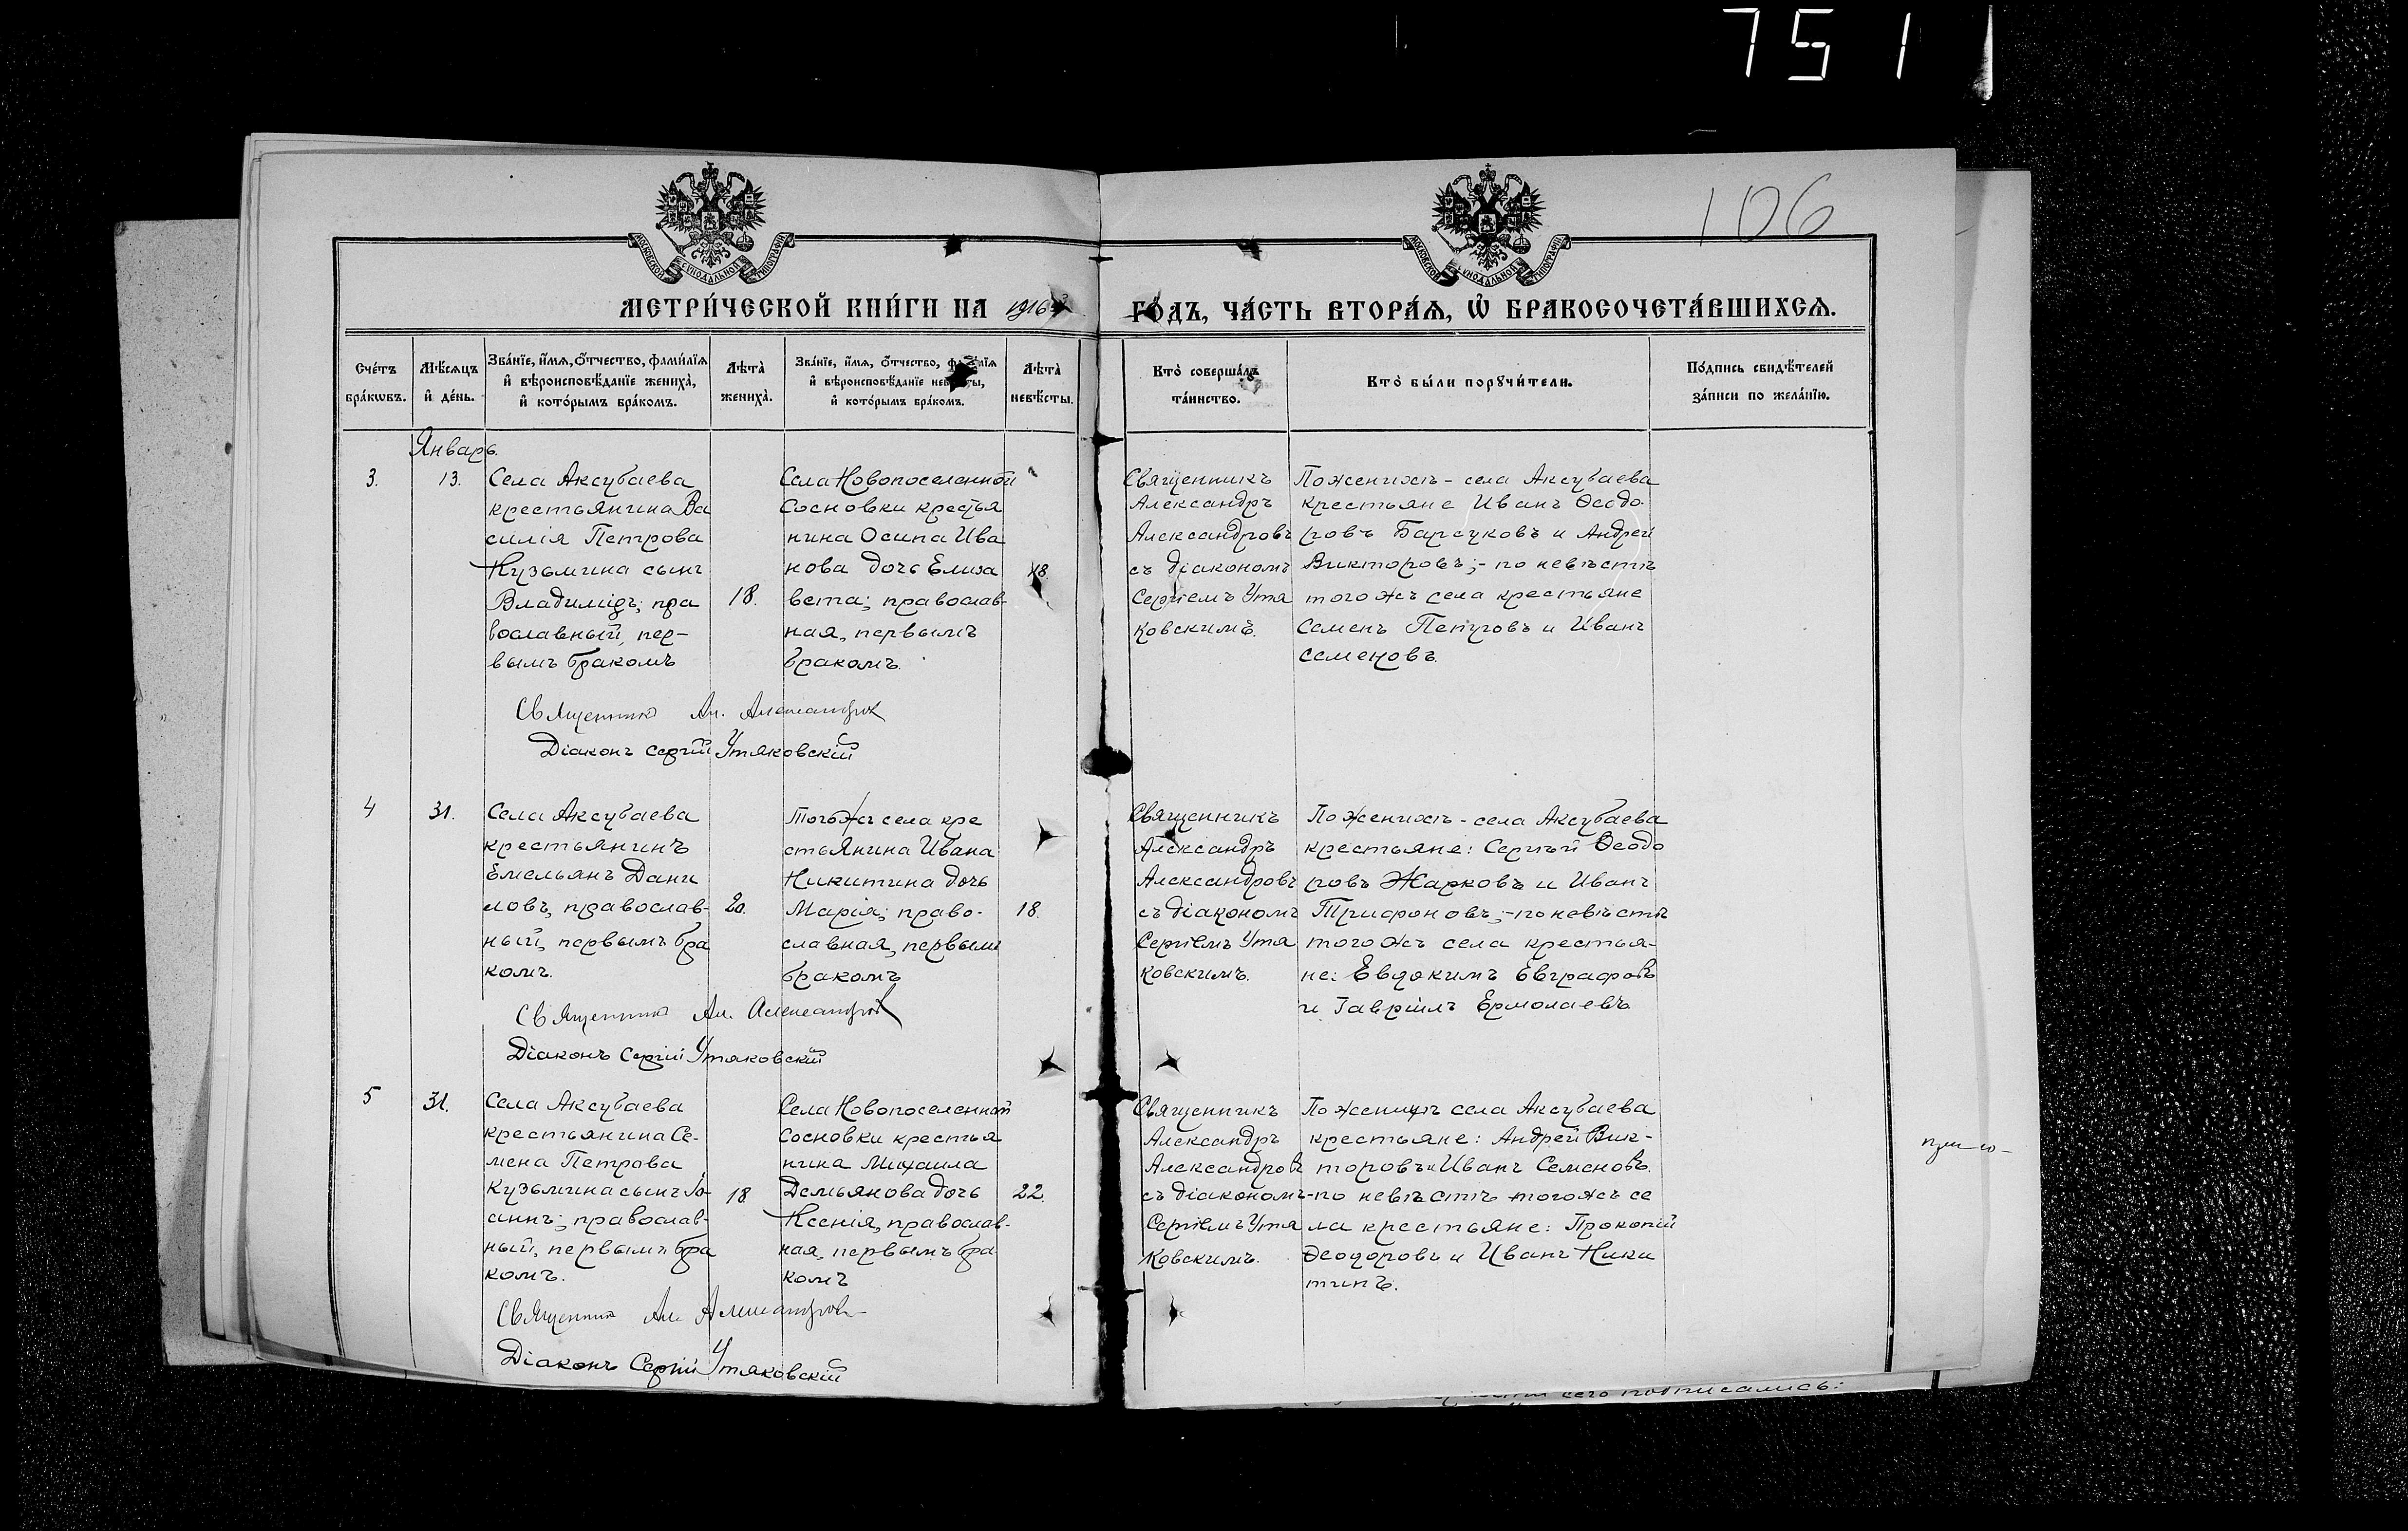 751
106
МОСКОВСКОЙ СѴНОДАЛЬНОЙ ТИПОГРАФІИ
МОСКОВСКОЙ СѴНОДАЛЬНОЙ ТИПОГРАФІИ
МЕТРИ́ЧЕСКОЙ КНИ́ГИ НА 1916й ГО́ДЪ, ЧА́СТЬ ВТОРА́Ѧ, Ѡ҆ БРАКОСОЧЕТА́ВШИХСѦ.
Сче́тъ бра́кѡвъ.
Мѣ́сяцъ и҆ де́нь.
Зва́нїе, и҆́мя, ѻ҆́тчество, фами́лїя
и҆ вѣроисповѣ́данїе жениха̀,
и҆ кото́рымъ бра́комъ.
Лѣта̀ жениха̀.
Зва́нїе, и҆́мя, ѻ҆́тчество, фами́лїя
и҆ вѣроисповѣ́данїе невѣ́сты,
и҆ кото́рымъ бра́комъ.
Лѣта̀ невѣ́сты.
Кто̀ соверша́лъ
та́инство.
Кто̀ бы́ли порꙋчи́тели.
По́дпись свидѣ́телей
за́писи по жела́нїю.
Январь.
3.
13.
Села Аксубаева
крестьянина Ва
силія Петрова
Кузьмина сынъ
Владиміръ; пра
вославный, пер-
вымъ бракомъ
18.
Села Новопоселенной
Сосновки крестья
нина Осипа Ива
нова дочь Елиза
вета; православ-
ная, первымъ
бракомъ.
18.
Священникъ
Александръ
Александровъ
съ діакономъ
Сергіемъ Утя
ковскимъ.
По женихѣ - села Аксубаева
крестьяне Иванъ Ѳеодо
ровъ Барсуковъ и Андрей
Викторовъ; - по невѣстѣ
того жъ села крестьяне
Семенъ Петровъ и Иванъ
Семеновъ.
Священникъ Ал. Александровъ
Діаконъ Сергій Утяковскій
4
31.
Села Аксубаева
крестьянинъ
Емельянъ Дани
ловъ, православ-
ный, первымъ бра
комъ.
20.
Того жъ села кре
стьянина Ивана
Никитина дочь
Марія; право-
славная, первымъ
бракомъ
18.
Священникъ
Александръ
Александровъ
съ діакономъ
Сергіемъ Утя
ковскимъ.
По женихѣ - села Аксубаева
крестьяне: Сергѣй Ѳеодо
ровъ Жарковъ и Иванъ
Трифоновъ; - по невѣстѣ
того жъ села крестья-
не: Евдокимъ Евграфовъ
и Гавріилъ Ермолаевъ
Священникъ Ал. Александровъ
Діаконъ Сергій Утяковскій
5
31.
Села Аксубаева
крестьянина Се-
мена Петрова
Кузьмина сынъ Іо-
аннъ; православ-
ный, первымъ бра
комъ.
18
Села Новопоселенной
Сосновки крестья
нина Михаила
Демьянова дочь
Ксенія, православ-
ная, первымъ бра
комъ
22.
Священникъ
Александръ
Александровъ
съ діакономъ
Сергіемъ Утя
ковскимъ.
По женихѣ села Аксубаева
крестьяне: Андрей Вик-
торовъ и Иванъ Семеновъ.
- по невѣстѣ того жъ се
ла крестьяне: Прокопій
Ѳеодоровъ и Иванъ Ники
тинъ.
Священникъ Ал. Александровъ
Діаконъ Сергій Утяковскій
сего подписались: